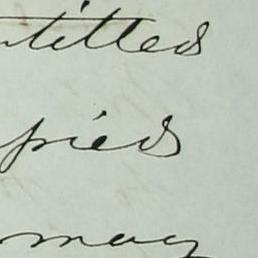 ntitled
pied
may